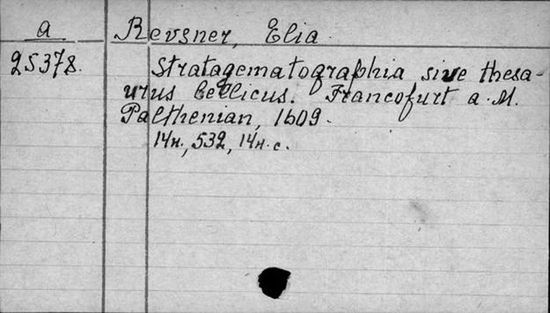 a
Revsner, Elia.
25378.
Stratagematographia sive thesa-
urus bellicus. Francofurt a. M.
Palthenian, 1609.
14н., 532, 14н. с.